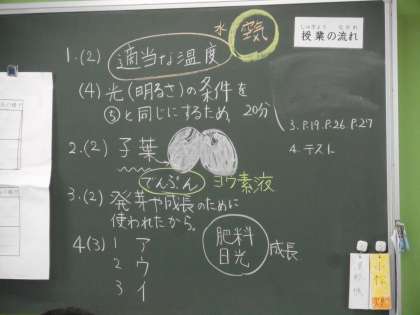 水 空気
1.(2) 適当な温度
(4) 光(明るさ)の条件を
③と同じにするため 20分
2.(2) 子葉
でんぷん ヨウ素液
3.(2) 発芽や成長のために
使われたから。
4(3) 1 ア
2 ウ
3 イ
肥料
日光 成長
じゅぎょう ながれ
授業の流れ
3. P.19, P.26, P.27
4. テスト